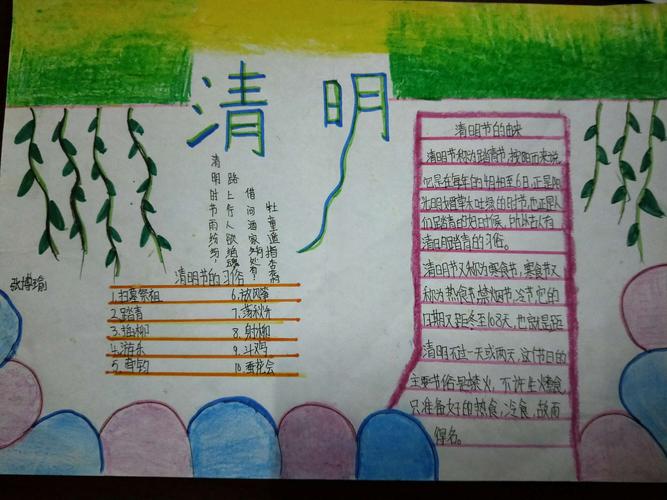 清明
清明时节雨纷纷，
路上行人欲断魂。
借问酒家何处有？
牧童遥指杏花
张博瑜
清明节的习俗
1.扫墓祭祖
2.踏青
3.插柳
4.游乐
5.
6.放风筝
7.荡秋千
8.射柳
9.斗鸡
10.蚕花会
清明节的由来
清明节又称为踏青节，按阳历来说
它是在每年的4月4日至6日，正是
草木吐绿的时节，也正是人
们踏青的好时候，所以古人有
清明踏青的习俗。
清明节又称为寒食节，寒食节又
称为熟食节、禁烟节，冷节。它的
日期又距冬至108天，也就是距
清明不过一天或两天，这个节日的
主要节俗是禁火，不许生火煮食，
只准备好的热食，冷食，故而
得名。